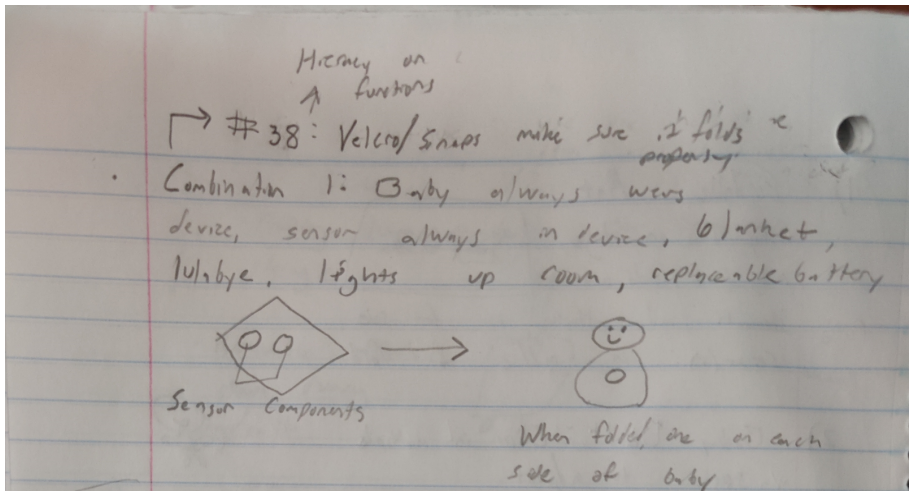 Hieracy on
functions
#38: Velcro/Snaps make sure it folds
properly
Combination 1: Baby always wers
device, sensor always in device, blanket,
lulabye, lights up room, replaceable battery
Sensor Components
When folded, one on each
side of baby